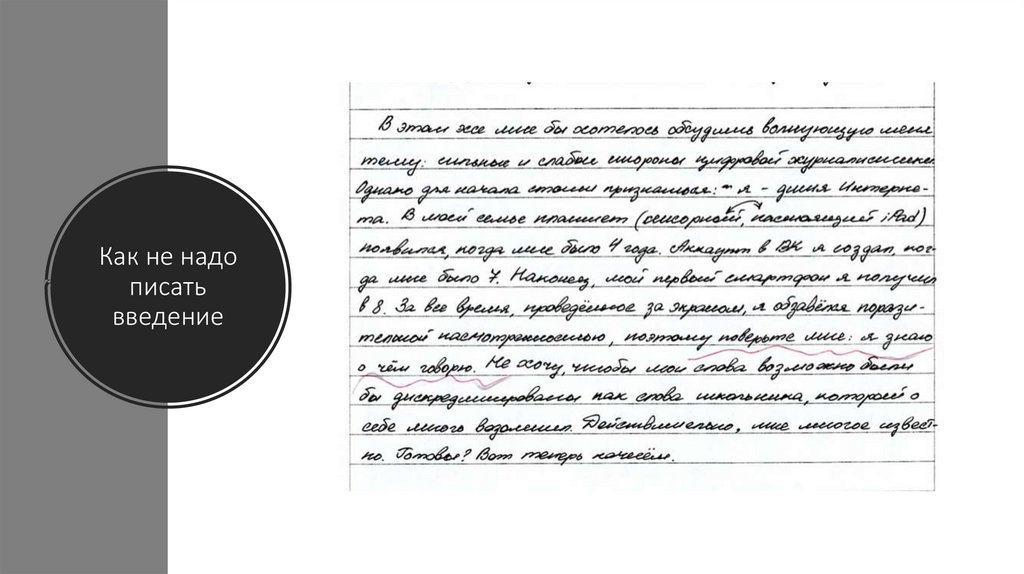 Как не надо
писать
введение
В этом эссе мне бы хотелось обсудить волнующую меня
тему: сильные и слабые стороны цифровой журналистики.
Однако для начала стоит признаться: я – дитя Интерне-
та. В моей семье планшет (сенсорный, настоящий iPad)
появился, когда мне было 4 года. Аккаунт в ВК я создал, ког-
да мне было 7. Наконец, мой первый смартфон я получил
в 8. За все время, проведённое за экраном, я обзавёлся порази-
тельной насмотренностью, поэтому поверьте мне: я знаю
о чём говорю. Не хочу, чтобы мои слова возможно были
бы дискредитированы как слова школьника, который о
себе много возомнил. Действительно, мне многое извест-
но. Готовы? Вот теперь начнём.